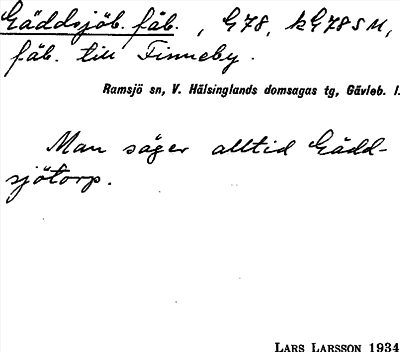 Gäddsjöb. fäb., G78, kG78SM,
fäb. till Finneby.
Ramsjö sn, V. Hälsinglands domsagas tg, Gävleb. l.
Man säger alltid Gädd-
sjötorp.
LARS LARSSON 1934